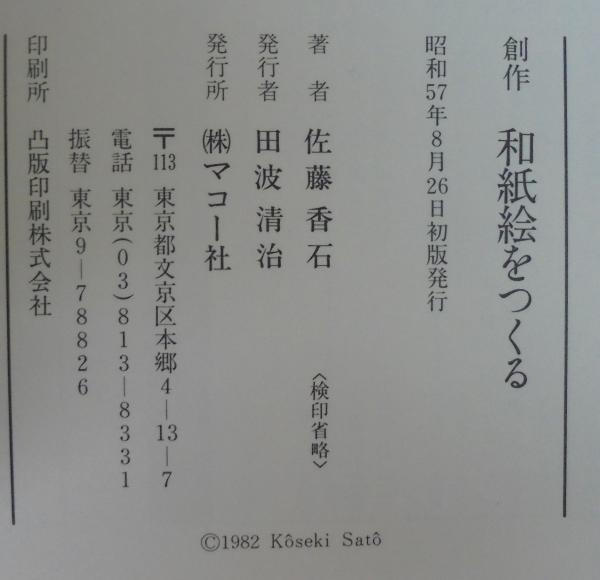 創作 和紙絵をつくる
昭和57年8月26日初版発行
著者 佐藤香石 〈検印省略〉
発行者 田波清治
発行所 ㈱マコー社
〒113 東京都文京区本郷4—13—7
電話 東京(03)813—8331
振替 東京9—78826
印刷所 凸版印刷株式会社
©1982 Kôseki Satô